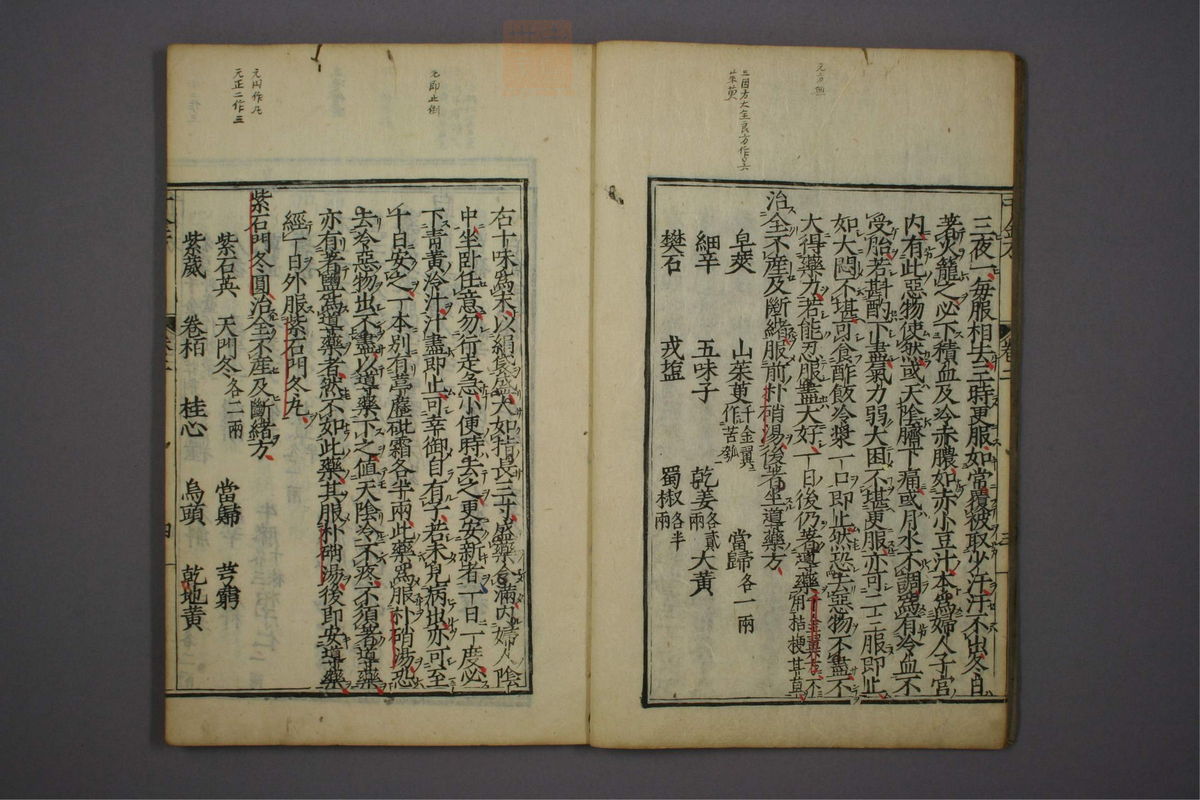 元方無
三因方大全良方作呉
茱萸
三夜一毎服相去三時更服如常覆被取少汗汗不出冬日
著火籠之必下積血及冷赤膿如赤小豆汁本爲婦人子宮
内有此惡物使然或天陰臍下痛或月水不調爲有冷血不
受胎若斟酌下盡氣力弱大困不堪更服亦可二三服即止
如大悶不堪可食酢飯冷漿一口即止然恐去惡物不盡不
大得藥力若能忍服盡大好一日後仍著導藥千金翼方不用桔梗甘草
治全不産及斷緒服前朴硝湯後著坐導藥方
皂莢 山茱萸千金翼作苦瓠 當歸各一兩
細辛 五味子 乾姜各貳兩 大黄
礬石 戎塩 蜀椒各半兩
元即止倒
元円作丸
元正二作三
右十味爲末以絹袋盛大如指長三寸盛藥令滿内婦人陰
中坐卧任意勿行走急小便時去之更安新者一日一度必
下青黄冷汁汁盡即止可幸御自有子若未見病出亦可至
十日安之一本別有葶藶砒霜各半兩此藥爲服朴硝湯恐
去冷惡物出不盡以導藥下之値天陰冷不疼不須著導藥
亦有著鹽爲導藥者然不如此藥其服朴硝湯後即安導藥
經一日外服紫石門冬丸
紫石門冬圓治全不産及斷緒方
紫石英 天門冬各三兩 當歸 芎藭
紫葳 卷柏 桂心 烏頭 乾地黄